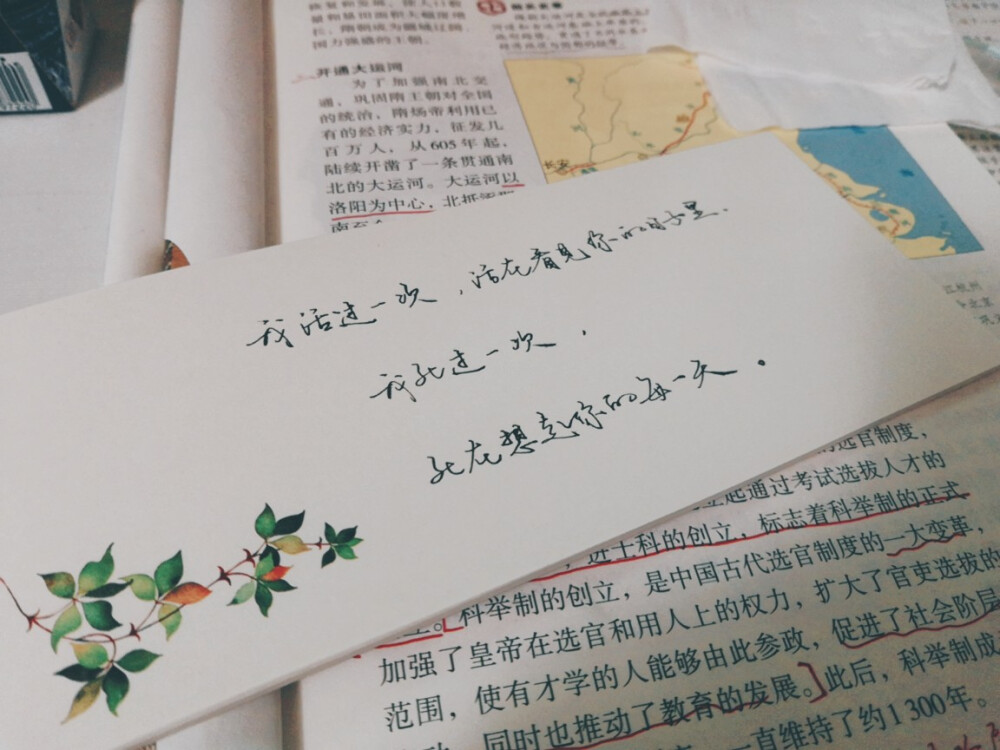 长，隋朝成为疆域辽阔、
国力强盛的王朝。
开通大运河
为了加强南北交
通，巩固隋王朝对全国
的统治，隋炀帝利用已
有的经济实力，征发几
百万人，从605年起，
陆续开凿了一条贯通南
北的大运河。大运河以
洛阳为中心，北抵
长安
我活过一次，活在看见你的日子里.
我死过一次，
死在想起你的每一天。
选官制度，
起通过考试选拔人才的
进士科的创立，标志着科举制的正式
科举制的创立，是中国古代选官制度的一大变革，
加强了皇帝在选官和用人上的权力，扩大了官吏选拔的
范围，使有才学的人能够由此参政，促进了社会阶层
同时也推动了教育的发展。此后，科举制成
一直维持了约1300年。